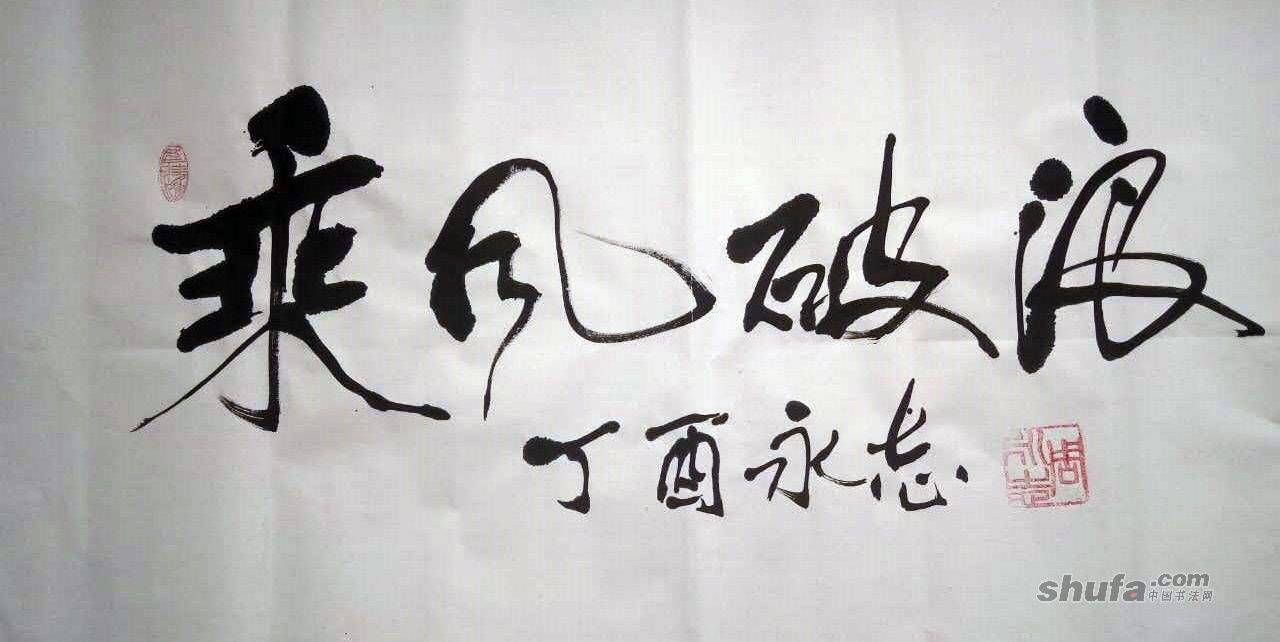 乘风破浪
丁酉永志
周永志
shufa.com
中国书法网